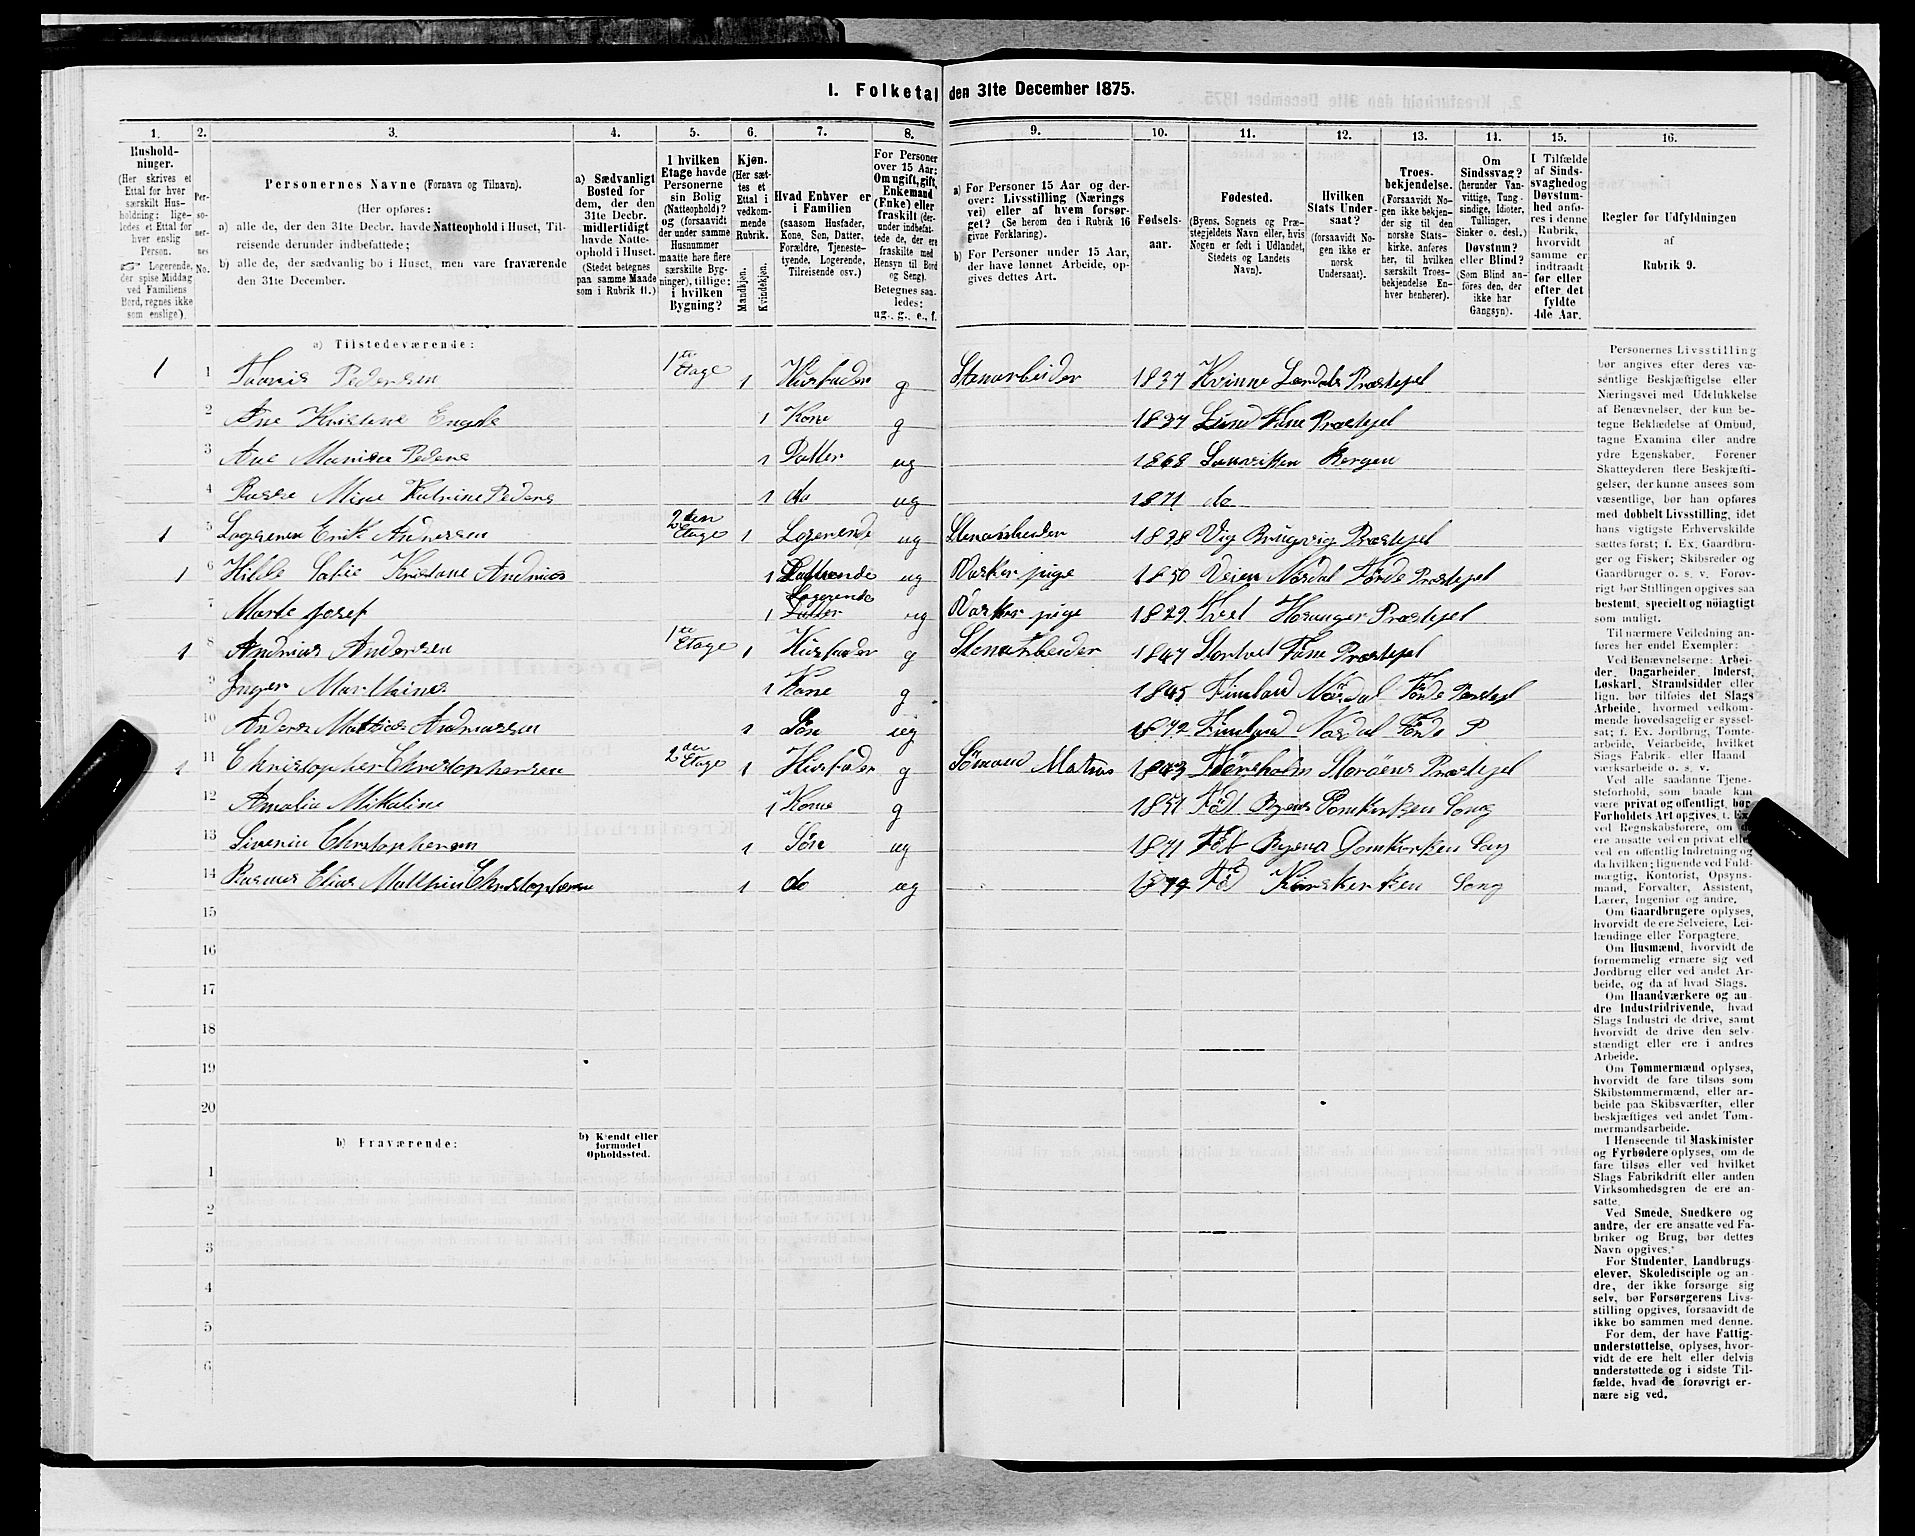 I. Folketal den 31te December 1875.
1. 2. 3. 4. 5. 6. 7. 8. 9. 10. 11. 12. 13. 14. 15. 16.
Hushold-
ninger.
(Her skrives et
Ettal for hver
særskilt Hus-
holdning; lige-
ledes et Ettal for
hver enslig
Person.
☞ Logerende,
der spise Middag
ved Familiens
Bord, regnes ikke
som enslige).
Per-
so-
ner-
nes
No.
Personernes Navne (Fornavn og Tilnavn).
(Her opføres:
a) alle de, der den 31te Decbr. havde Natteophold i Huset, Til-
reisende derunder indbefattede;
b) alle de, der sædvanlig bo i Huset, men vare fraværende
den 31te December.
a) Sædvanligt
Bosted for
dem, der den
31te Decbr.
midlertidigt
havde Natte-
ophold i Huset.
(Stedet betegnes
paa samme Maade
som i Rubrik 11.)
I hvilken
Etage havde
Personerne
sin Bolig
(Natteophold)?
og (forsaavidt
der under samme
Husnummer
maatte høre flere
særskilte Byg-
ninger), tillige:
i hvilken
Bygning?
Kjøn.
(Her sæt-
tes et
Ettal i
vedkom-
mende
Rubrik.
Mandkjøn.
Kvindekjøn.
Hvad Enhver er
i Familien
(saasom Husfader,
Kone, Søn, Datter,
Forældre, Tjeneste-
tyende, Logerende,
Tilreisende osv.)
For Personer
over 15 Aar:
Om ugift, gift,
Enkemand
(Enke) eller
fraskilt (der-
under indbefat-
tede de, der ere
fraskilte med
Hensyn til Bord
og Seng).
Betegnes saa-
ledes:
ug., g., e., f.
a) For Personer 15 Aar og der-
over: Livsstilling (Nærings
vei) eller af hvem forsør-
get? (Se herom den i Rubrik 16
givne Forklaring).
b) For Personer under 15 Aar,
der have lønnet Arbeide, op-
gives dettes Art.
Fødsels-
aar.
Fødested.
(Byens, Sognets og Præ-
stegjeldets Navn eller, hvis
Nogen er født i Udlandet,
Stedets og Landets
Navn).
Hvilken
Stats Under-
saat?
(forsaavidt No-
gen ikke er
norsk
Undersaat).
Troes-
bekjendelse.
(Forsaavidt No-
gen ikke bekjen-
der sig til den
norske Stats-
kirke, anføres
her, til hvilken
særskilt Troes-
bekjendelse En-
hver henhører).
Om
Sindssvag?
(herunder Van-
vittige, Tung-
sindige, Idioter,
Tullinger,
Sinker o. desl.)
Døvstum?
eller Blind?
(Som Blind an-
føres den, der
ikke har
Gangsyn).
I Tilfælde
af Sinds-
svaghed og
Døvstum-
hed anfø-
res i denne
Rubrik,
hvorvidt
samme er
indtraadt
før eller
efter det
fyldte
4de Aar.
Regler for Udfyldningen
af
Rubrik 9.
a) Tilstedeværende:
1 1 Pedersen 1te Etage 1 Husfader g Stenarbeider 1837 Kvinne Præstejel
2 Ane Kristine 1 Kone g 1837 Lund Fane Præstejel
3 Ane 1 Datter ug 1868 Sanviken Bergen
4 1 do ug 1871 do
1 5 Logerene Erik Andersen 2den Etage 1 Logerende ug Stenarbeider 1838 Præstejel
1 6 Hilde Sofie Kristane Andrias 1 Logerende ug Vasker pige 1850 Veien Nordal Förde Præstejel
7 Marte Josef 1 Datter ug Vasker pige 1829 Hosanger Præstejel
1 8 Andrias Andersen 1te Etage 1 Husfader g Stenarbeider 1847 Fane Præstejel
9 Inger Marthine 1 Kone g 1845 Fimland Nordal Förde Præstejel
10 Anders Mattias Andriassen 1 Sön ug 1872 Fimland Nordal Förde P
1 11 Christopher Christophersen 2den Etage 1 Husfader g Sömand Matros 1843 Præstejel
12 Amalia Mikaline 1 Kone g 1851 Föt Byens Domkirken Song
13 Christophersen 1 Sön ug 1871 Föt Byens Domkirken Song
14 Rasmus Elias Mathias Christophersen 1 do ug Föd Korskirken Song
15
16
17
18
19
20
b) Fraværende:
b) Kjendt eller
formodet
Opholdssted.
1
2
3
4
5
6
Personernes Livsstilling
bør angives efter deres væ-
sentlige Beskjæftigelse eller
Næringsvei med Udelukkelse
af Benævnelser, der kun be-
tegne Beklædelse af Ombud,
tagne Examina eller andre
ydre Egenskaber. Forener
Skatteyderen flere Beskjæfti-
gelser, der kunne ansees som
væsentlige, bør han opføres
med dobbelt Livsstilling, idet
hans vigtigste Erhvervskilde
sættes først; f. Ex. Gaardbru-
ger og Fisker; Skibsreder og
Gaardbruger o. s. v. Forøv-
rigt bør Stillingen opgives saa
bestemt, specielt og nøiagtigt
som muligt.
Til nærmere Veiledning an-
føres her endel Exempler:
Ved Benævnelserne: Arbei-
der, Dagarbeider, Inderst,
Løskarl, Strandsidder eller
lign. bør tilføies det Slags
Arbeide, hvormed vedkom-
mende hovedsagelig er syssel-
sat; f. Ex. Jordbrug, Tomte-
arbeide, Veiarbeide, hvilket
Slags Fabrik- eller Haand
værksarbeide o. s. v.
Ved alle saadanne Tjene-
steforhold, som baade kan
være privat og offentligt, bør
Forholdets Art opgives, t. Ex.
ved Regnskabsførere, om de
ere ansatte ved en privat eller
ved en offentlig Indretning og
da hvilken; lignende ved Fuld-
mægtig, Kontorist, Opsyns-
mand, Forvalter, Assistent,
Lærer, Ingeniør og andre.
Om Gaardbrugere oplyses,
hvorvidt de ere Selveiere, Lei-
lændinge eller Forpagtere.
Om Husmænd, hvorvidt de
fornemmelig ernære sig ved
Jordbrug eller ved andet Ar-
beide, og da af hvad Slags.
Om Haandværkere og an
dre Industridrivende, hvad
Slags Industri de drive, samt
hvorvidt de drive den selv-
stændigt eller ere i andres
Arbeide.
Om Tømmermænd oplyses,
hvorvidt de fare tilsøs som
Skibstømmermænd, eller ar-
beide paa Skibsværfter, eller
beskjæftiges ved andet Tøm-
mermandsarbeide.
I Henseende til Maskinister
og Fyrbødere oplyses, om de
fare tilsøs eller ved hvilket
Slags Fabrikdrift eller anden
Virksomhedsgren de ere an-
satte.
Ved Smede, Snedkere og
andre, der ere ansatte ved Fa-
briker og Brug, bør dettes
Navn opgives.
For Studenter, Landbrugs
elever, Skoledisciple og an-
dre, der ikke forsørge sig
selv, bør Forsørgerens Livs-
stilling opgives, forsaavidt de
ikke bo sammen med denne.
For dem, der have Fattig-
understøttelse, oplyses, hvor-
vidt de ere helt eller delvis
understøttede og i sidste Til-
fælde, hvad de forøvrigt er-
nære sig ved.